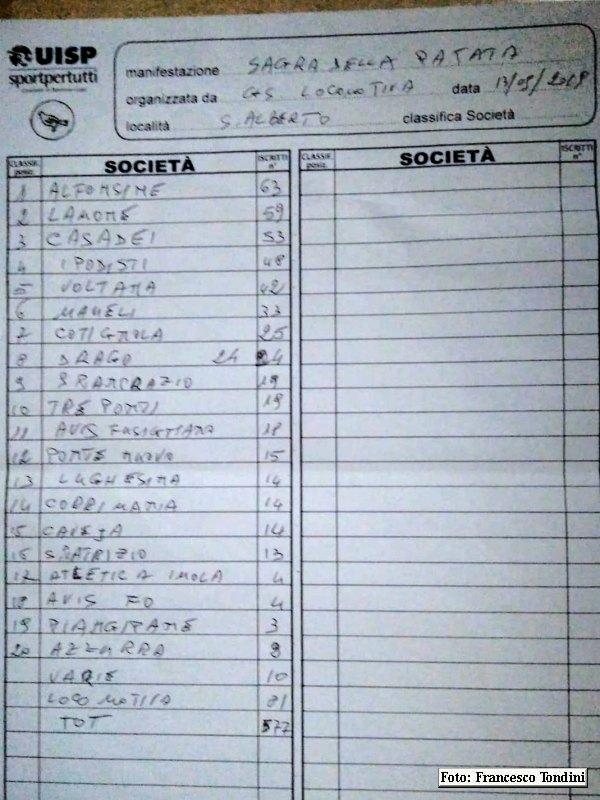 UISP
sportpertutti
manifestazione SAGRA DELLA PATATA
organizzata da GS LOCOMOTIVA data 13/05/2018
località S. ALBERTO classifica Società
CLASSIF. posiz. SOCIETÀ ISCRITTI n° CLASSIF. posiz. SOCIETÀ ISCRITTI n°
1 ALFONSINE 63
2 LAMONE 59
3 CASADEI 53
4 IPODISTI 48
5 VOLTANA 42
6 MAMELI 33
7 COTIGNOLA 25
8 DRAGO 24 24
9 S PANCRAZIO 19
10 TRE PONTI 19
11 AVIS FUSIGNANO 18
12 PONTE NUOVO 15
13 LUGHESINA 14
14 CORRI MANIA 14
15 CAVEJA 14
16 S. PATRIZIO 13
17 ATLETICA IMOLA 4
18 AVIS FO 4
19 PIANGIPANE 3
20 AZZURRA
VARIE 10
LOCOMOTIVA
TOT 577
Foto: Francesco Tondini